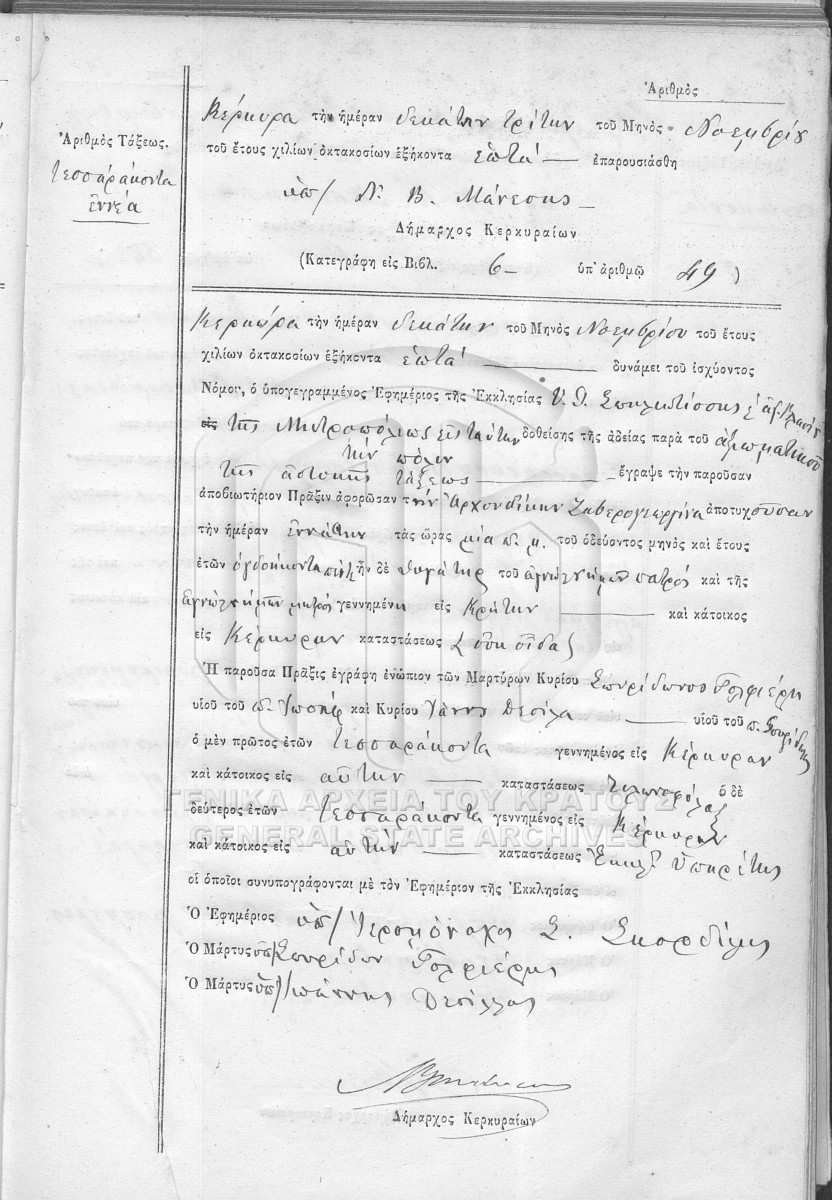 Ἀριθμὸς
Ἀριθμὸς Τάξεως.
τεσσαράκοντα
ἐννέα
Κέρκυρα τὴν ἡμέραν δεκάτην τρίτην τοῦ Μηνὸς Νοεμβρίου
τοῦ ἔτους χιλίων ὀκτακοσίων ἑξήκοντα ἑπτά — ἐπαρουσιάσθη
ὑπ/ Ν. Β. Μάνεσης
Δήμαρχος Κερκυραίων
(Κατεγράφη εἰς Βιβλ. 6 ὑπ' ἀριθμῷ 49)
Κερκύρα τὴν ἡμέραν δεκάτην τοῦ Μηνὸς Νοεμβρίου τοῦ ἔτους
χιλίων ὀκτακοσίων ἑξήκοντα ἑπτά — δυνάμει τοῦ ἰσχύοντος
Νόμου, ὁ ὑπογεγραμμένος Ἐφημέριος τῆς Ἐκκλησίας Υ. Θ. Σπηλιωτίσσης
τῆς Μητροπόλεως δοθείσης τῆς ἀδείας παρὰ τοῦ ἀξιωματικοῦ
τὴν πόλιν
τῆς ἀστυκῆς τάξεως — ἔγραψε τὴν παροῦσαν
ἀποβιωτήριον Πρᾶξιν ἀφορῶσαν τὴν Ἀρχονδίκην ἀποτυχοῦσαν
τὴν ἡμέραν ἐννάτην τὰς ὥρας μία π. μ. τοῦ ὁδεύοντος μηνὸς καὶ ἔτους
ἐτῶν ὀγδοήκοντα ἦν δὲ θυγάτηρ τοῦ ἀγνώστου πατρὸς καὶ τῆς
μητρὸς γεννημένη εἰς Κρήτην — καὶ κάτοικος
εἰς Κέρκυραν καταστάσεως
Ἡ παροῦσα Πρᾶξις ἐγράφη ἐνώπιον τῶν Μαρτύρων Κυρίου Σπυρίδωνος Γολφιέρη
υἱοῦ τοῦ π. Ἰωσήφ καὶ Κυρίου Ἰάννη Δεσίλα — υἱοῦ τοῦ π. Σπυρίδωνος
ὁ μὲν πρῶτος ἐτῶν τεσσαράκοντα γεννημένος εἰς Κέρκυραν
καὶ κάτοικος εἰς αὐτήν — καταστάσεως ὁ δὲ
δεύτερος ἐτῶν τεσσαράκοντα γεννημένος εἰς Κέρκυραν
καὶ κάτοικος εἰς αὐτήν — καταστάσεως Ἐκκλ. ὑπηρέτης
οἱ ὁποῖοι συνυπογράφονται μὲ τὸν Ἐφημέριον τῆς Ἐκκλησίας
Ὁ Ἐφημέριος ὑπ/ Ἱερομόναχος Σ. Σκορδίλης
Ὁ Μάρτυς ὑπ/ Σπυρίδων Γολφιέρης
Ὁ Μάρτυς ὑπ/ Ἰωάννης Δεσίλλας
Δήμαρχος Κερκυραίων
ΓΕΝΙΚΑ ΑΡΧΕΙΑ ΤΟΥ ΚΡΑΤΟΥΣ
GENERAL STATE ARCHIVES